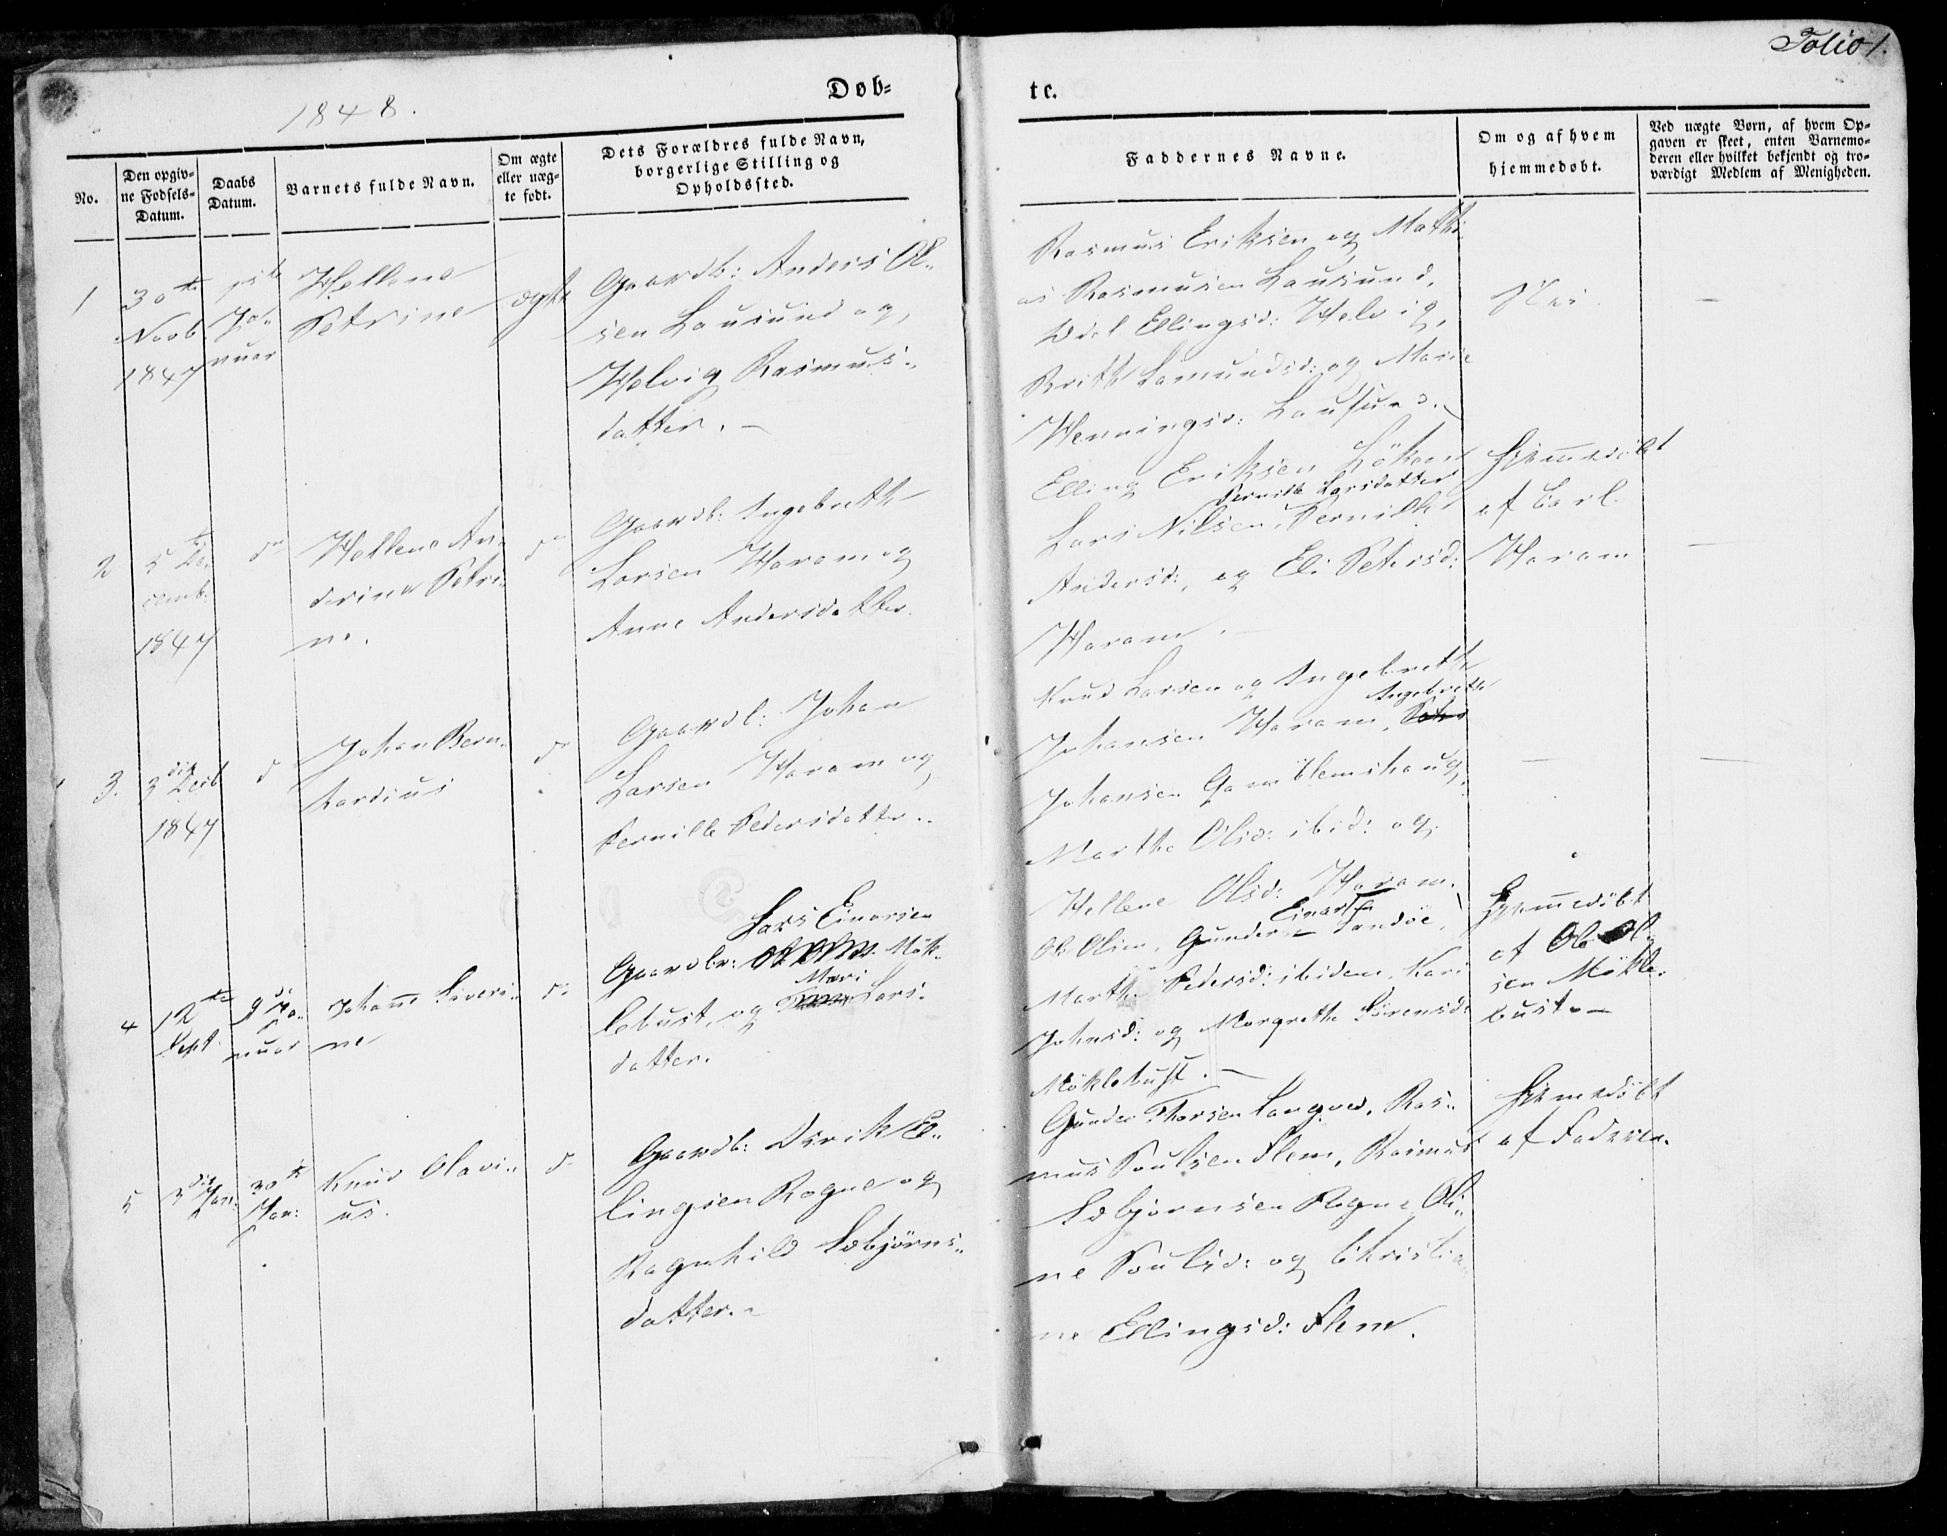 Folio 1.
1848.
Døb=
te.
No.
Den opgiv=
ne Fødsels=
Datum.
Daabs
Datum.
Barnets fulde Navn.
Om ægte
eller uæg=
te født.
Dets Forældres fulde Navn,
borgerlige Stilling og
Opholdssted.
Faddernes Navne.
Om og af hvem
hjemmedøbt.
Ved uægte Børn, af hvem Op=
gaven er skeet, enten Barnemo=
deren eller hvilket bekjendt og tro=
værdigt Medlem af Menigheden.
1
30te
Novb.
1847
1ste
Ja-
nuar
Hellene
Petrine
ægte
Gaardb: Anders Ol-
sen Lausund og
Helvig Rasmus-
datter. —
Rasmus Eriksen og Mathi-
as Rasmusen Lausund,
Ellingsd: Helvig,
Brithe Lamundsd: og Marie
Henningsd: Lausund. —
Nei.
—
2
5te De-
cemb.
1847
do
Hellene An-
derina Petri-
ne.
do
Gaardb: Ingebreth
Larsen Haram og
Anne Andersdatter.
Elling Eriksen Löken
Pernille Larsdatter
Lars Nilsen, Pernille
Andersd:, og Eli Petersd:
Haram. —
Hjemmedöbt
af Carl
Haram
—
3.
3die Decb
1847
do
Johan Bern-
hardius
do
Gaardb: Johan
Larsen Haram og
Pernille Pedersdatter.
Knud Larsen og Ingebreth
Ingebreth
Johansen Haram, Peter
Johansen Gamlemshaug,
Marthe Olsd: ibid: og
Hellene Olsd: Haram.
—
—
4
12te
Sept
9de Ja-
nuar
Johanne Siveri-
ne
do
Lars Einarsen
Gaardbr: Mök-
Mari
lebust, og Lars-
datter.
Einarsen
Ole Olsen, Gunder Sandöe,
Marthe Pedersd: ibidem, Kari
Johnsd: og Margrethe Sörensd:
Möklebust. —
Hjemmedöbt
af Ole Ol-
sen Mökle-
bust. —
5
3die Jan:
30te
Jan:
Knud Olavi-
us.
do
Gaardb: Dsrik El-
lingsen Rogne og
Ragnhild Esbjörns-
datter. -
Gunder Thorsen Longved, Ras-
mus Poulsen Flem, Rasmus
Esbjørnsen Rogne, Oli-
ne Poulsd: og Christia-
ne Ellingsd: Flem.
Hjemmedöbt
af Faderen.